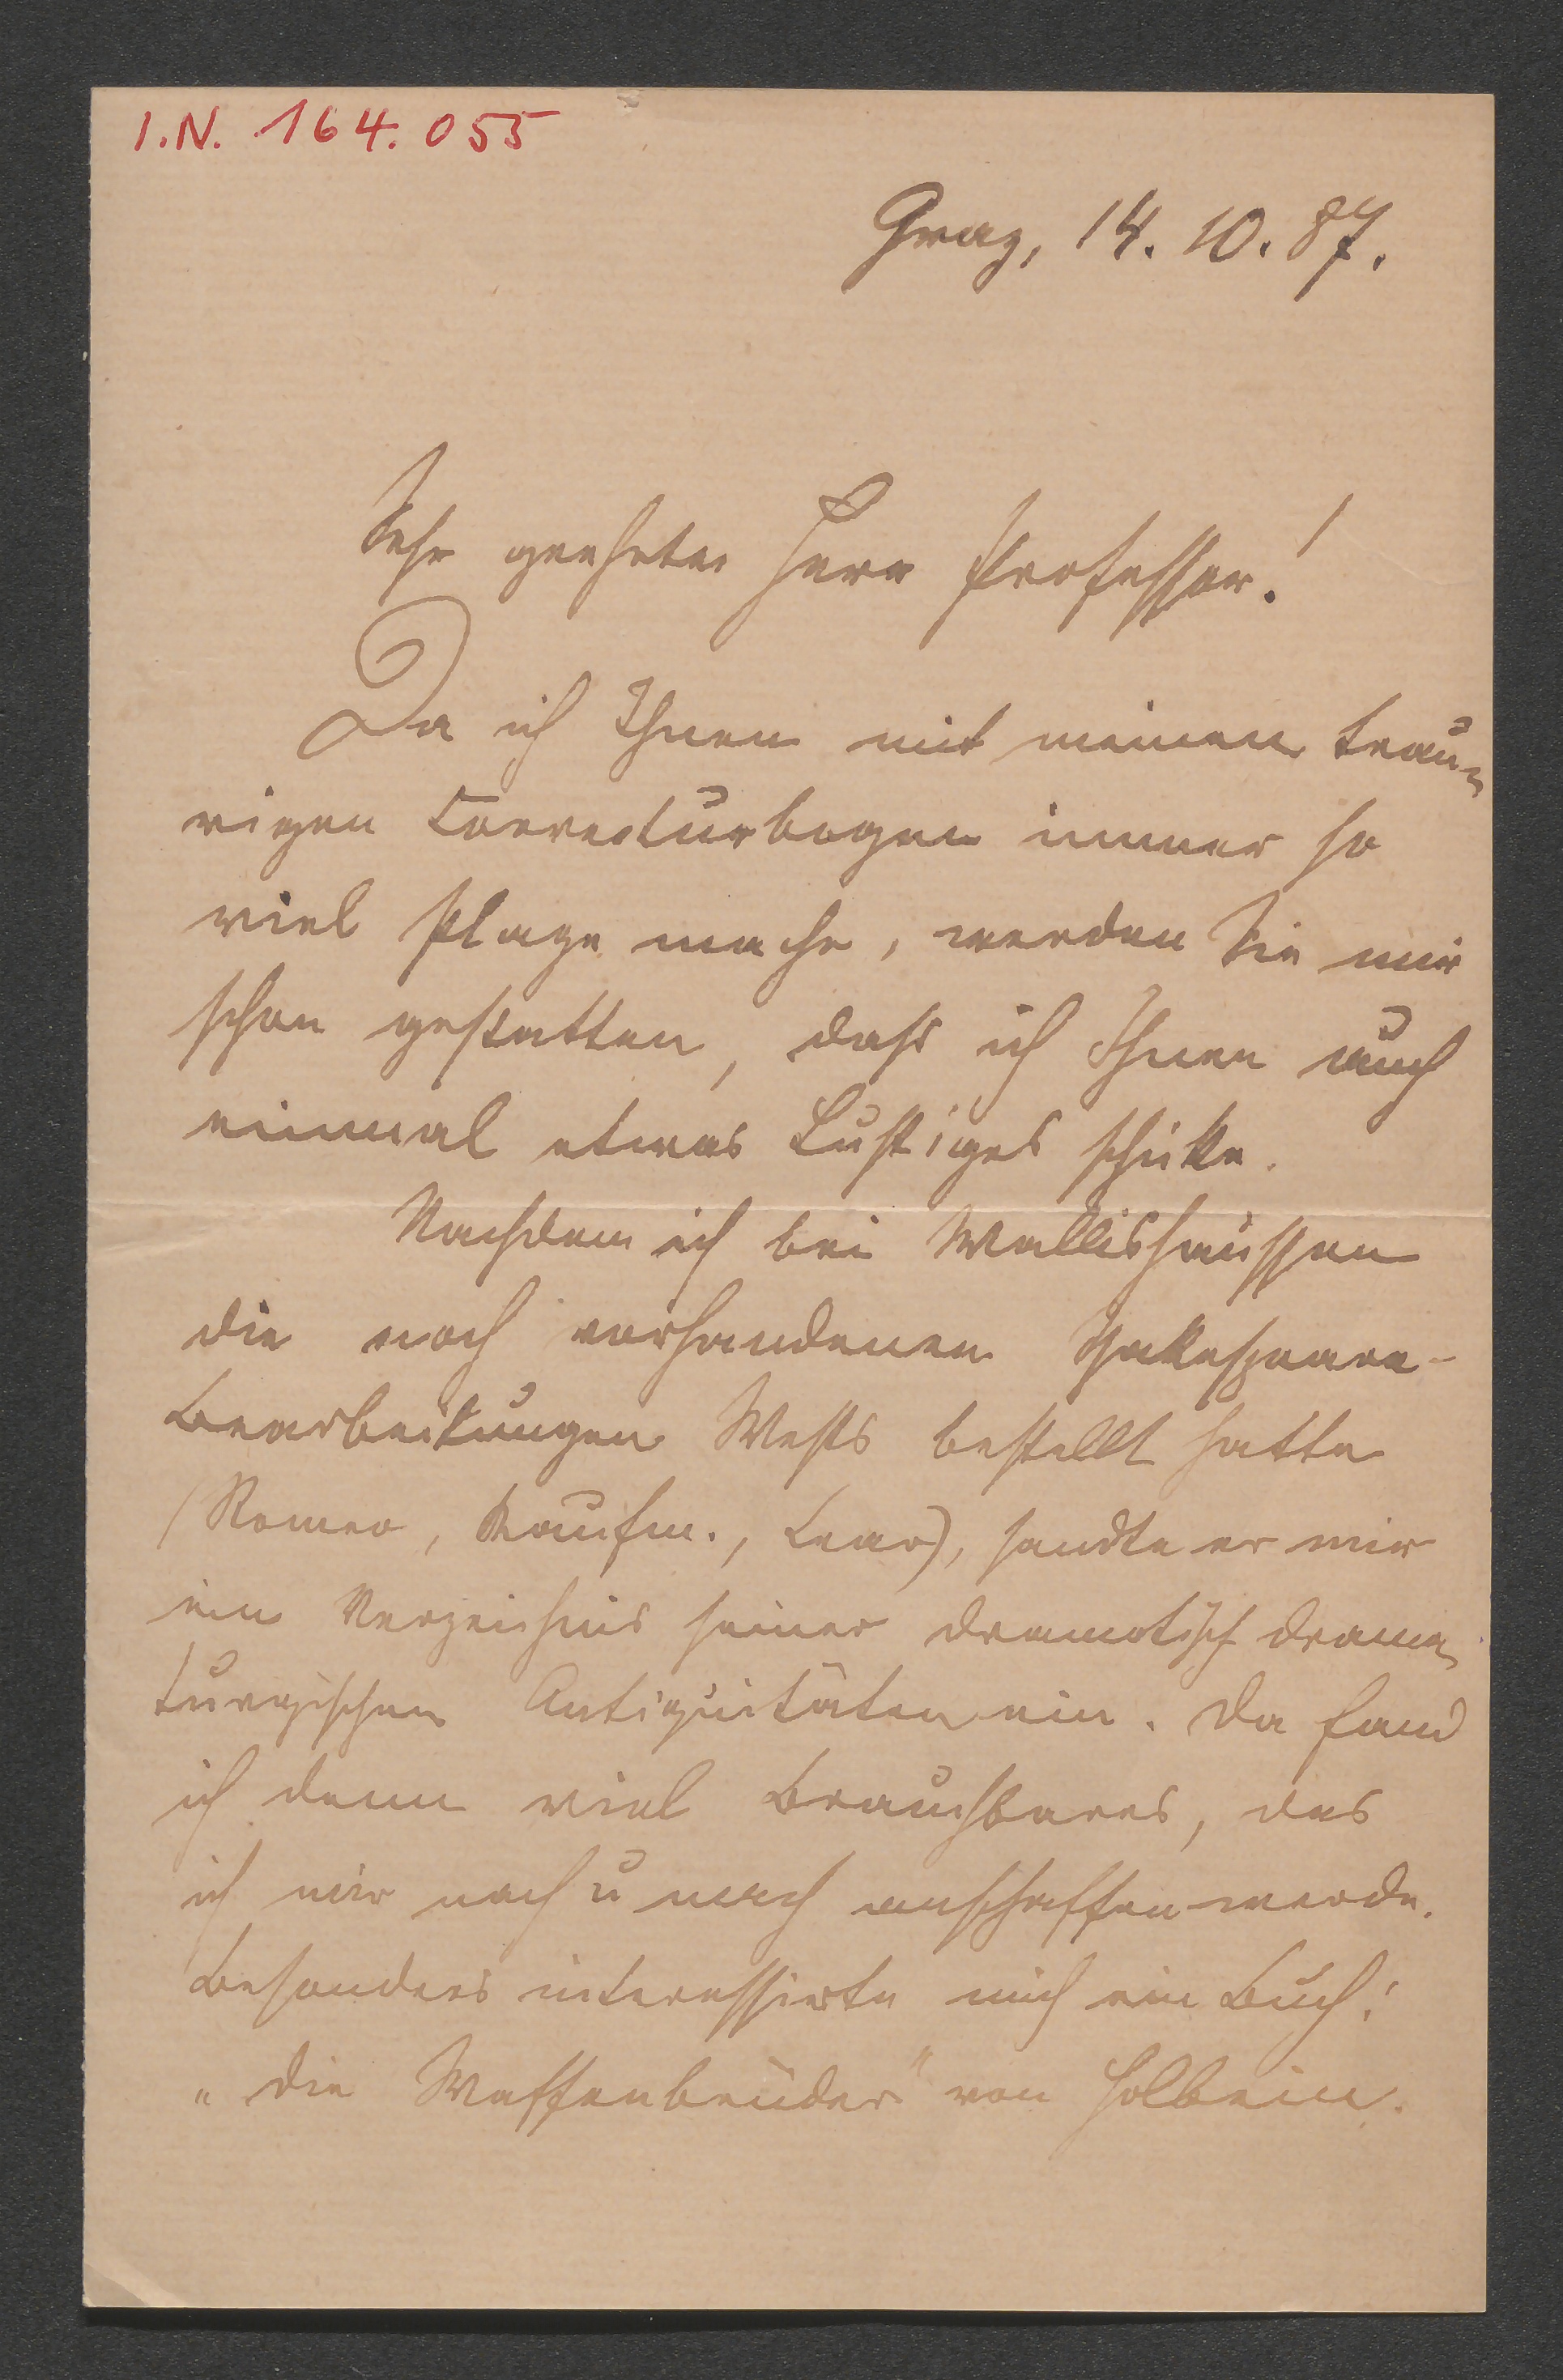 I.N. 164.055
Graz, 14. 10. 87.
Sehr geehrter Herr Professor!
Da ich Ihnen mit meinen trau-
rigen Correcturbogen immer so
viel Plage mache, werden Sie mir
schon gestatten, dass ich Ihnen auch
einmal etwas Lustiges schicke.
Nachdem ich bei Wallishaussen
die noch vorhandenen Shakespeare-
Bearbeitungen Wests bestellt hatte
(Romeo, Kaufm., Lear), sandte er mir
ein Verzeichnis seiner dramatisch drama-
turgischen Antiquitäten ein. Da fand
ich denn viel Brauchbares, das
ich mir nach u nach anschaffen werde.
Besonders interessierte mich ein Buch:
„die Waffenbrüder“ von Holbein.